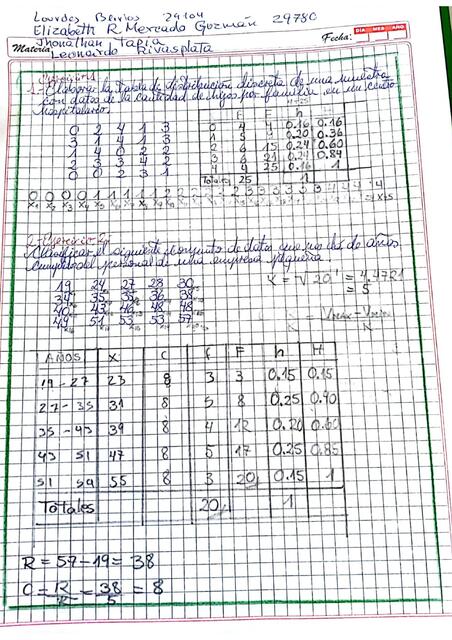 Lourdes Barrios 29104
Elizabeth R Mercado Guzmán 29780
Jhonathan Tapia
Leonardo Rivasplata
Materia:
Fecha:
DIA MES AÑO
1.- Elaborar la tabla de distribución discreta de una muestra
con datos de la cantidad de hijos por familia en un centro
hospitalario.
0 2 4 1 3
3 1 4 1 3
1 4 0 2 2
2 3 3 4 2
0 0 2 3 1
f F h H
0 4 4 0.16 0.16
1 5 9 0.20 0.36
2 6 15 0.24 0.60
3 6 21 0.24 0.84
4 4 25 0.16 1
Totales 25 1
0 0 0 0 1 1 1 1 1 2 2
2.- Ejercicio 2
Clasificar el siguiente conjunto de datos que son de años
cumplidos del personal de una empresa pequeña.
19 24 27 28 30
34 35 35 36 38
40 43 48 48
49 51 53 53 57
K = √20 = 4.4721
= 5
= Vmax - Vmin
K
AÑOS X C f F h H
19-27 23 8 3 3 0.15 0.15
27-35 31 8 5 8 0.25 0.40
35-43 39 8 4 12 0.20 0.60
43 51 47 8 5 17 0.25 0.85
51 59 55 8 3 20 0.15 1
Totales 20 1
R = 57-19 = 38
C = R/K = 38/5 = 8